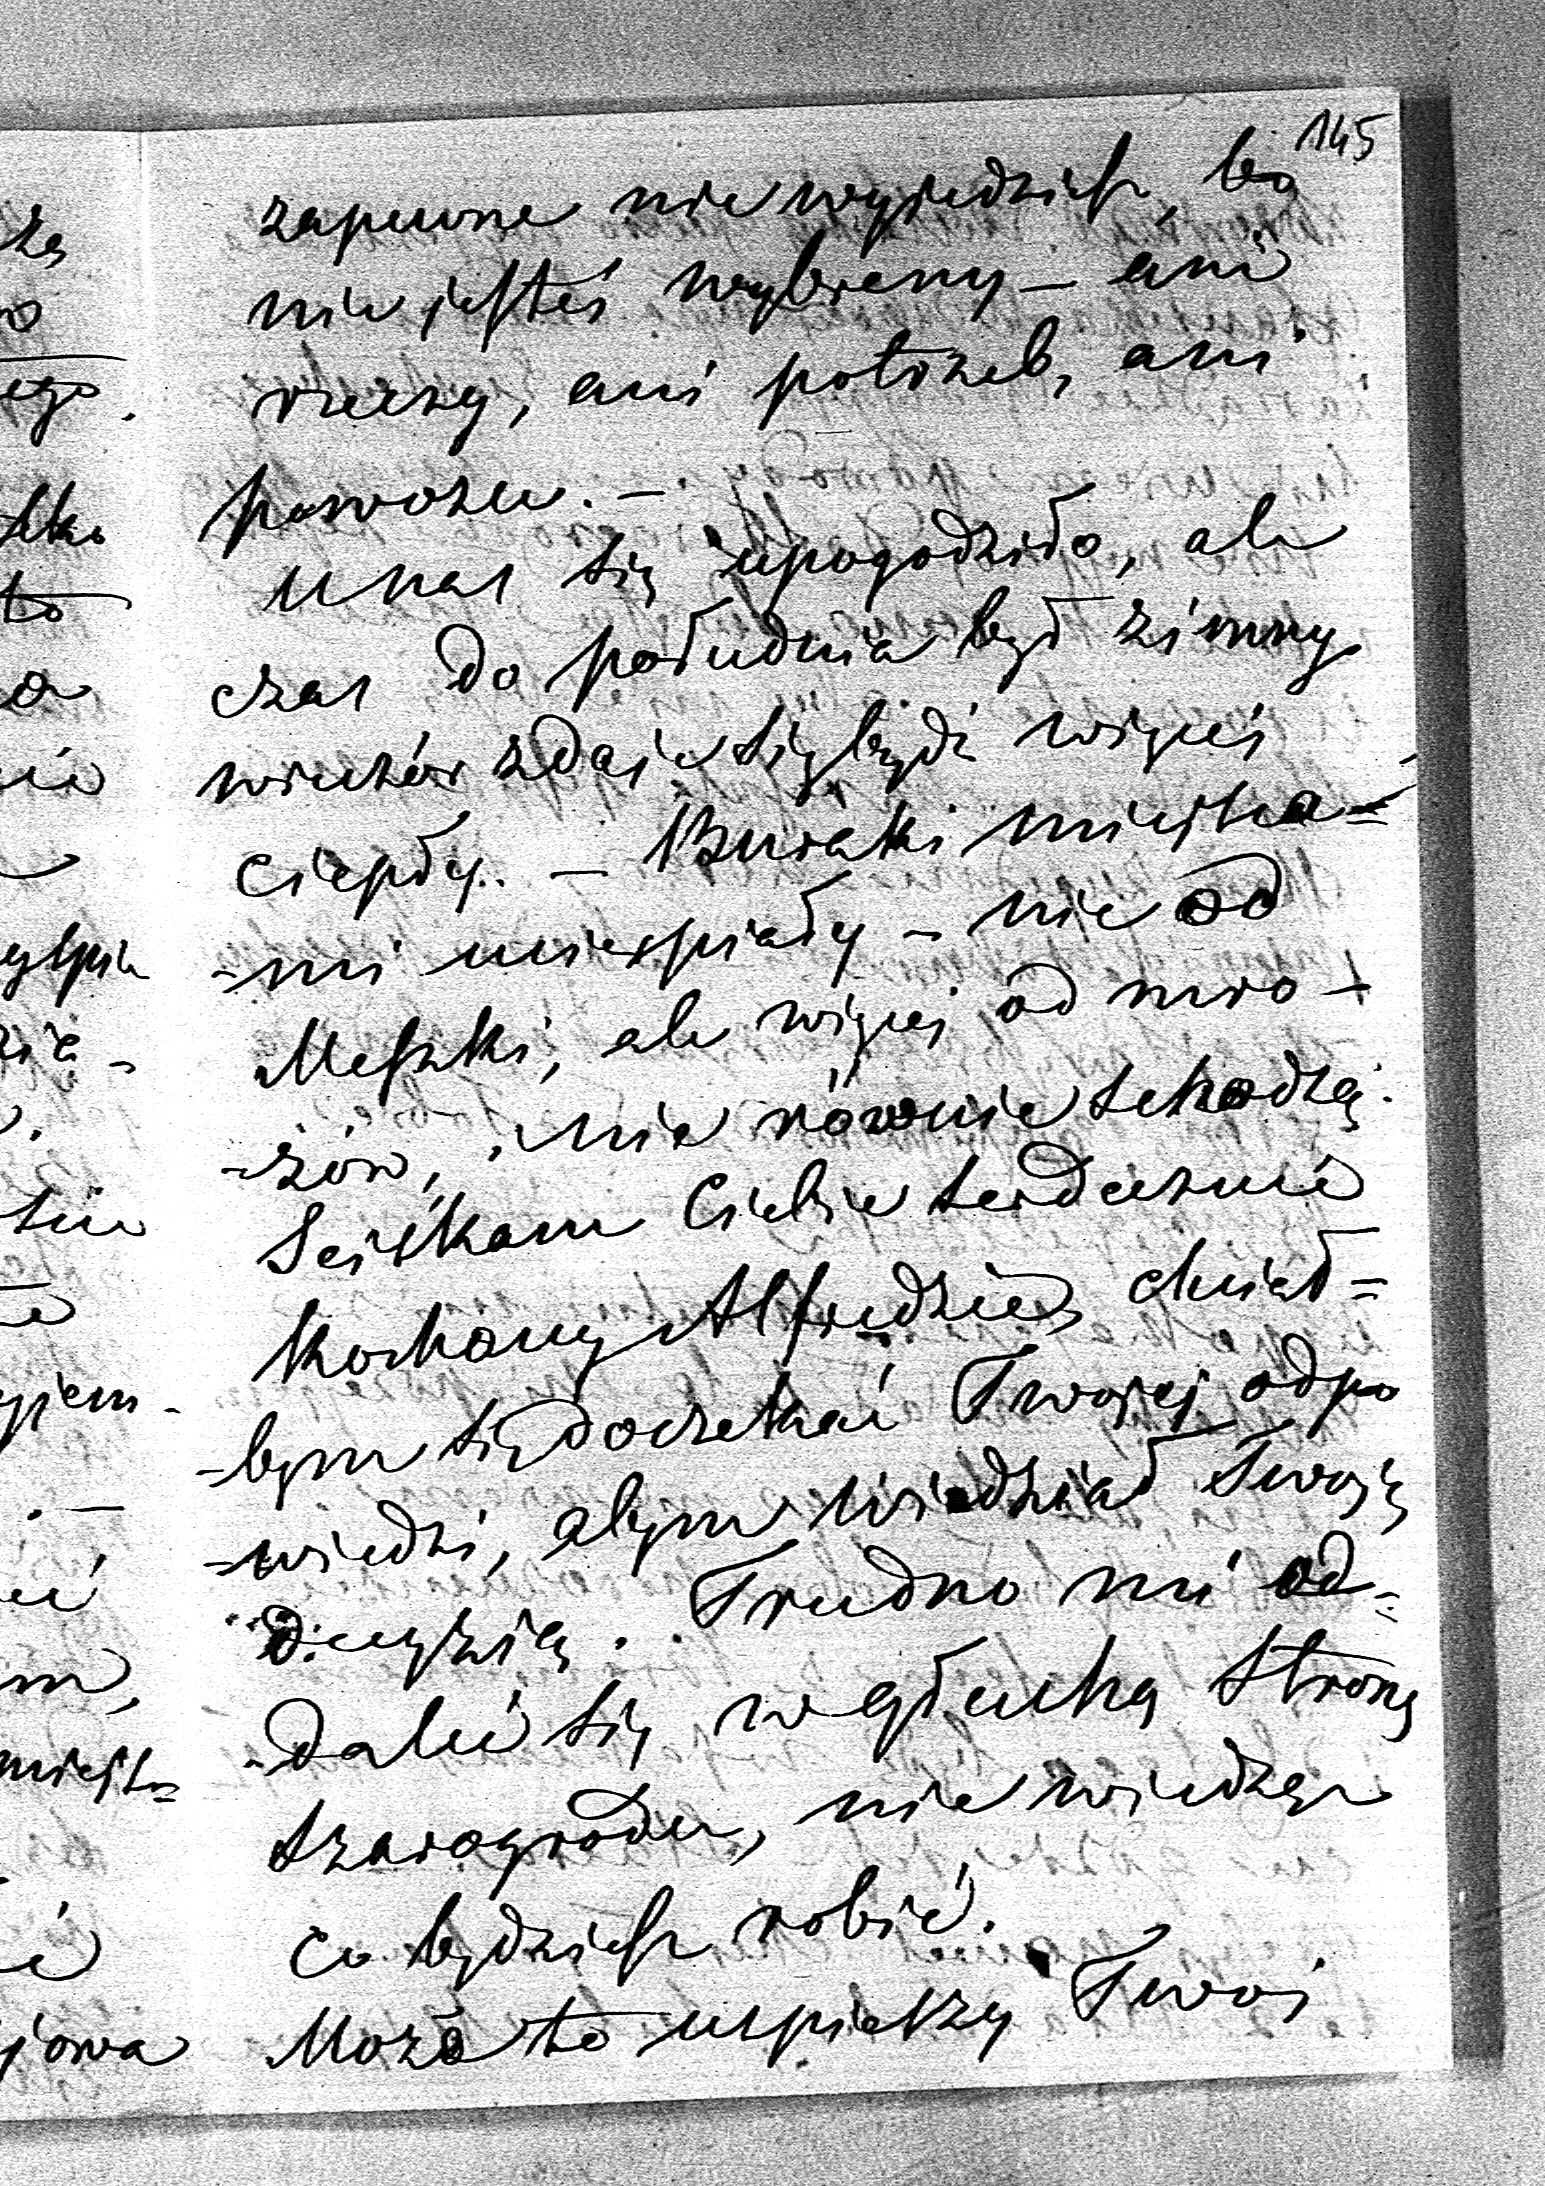 145
zapewne nie wyjedziesz, bo
nie jesteś wybrany – ani
rzeczy, ani potrzeb, ani
powozu. –
U nas się upogodziło, ale
czas do południa był zimny
wieczór zdaje się bydź więcej
ciepły. – Buraki miejsca=
-mi ucierpiały – nie od
Meszki, ale więcej od mro-
-zów, nie równie schodzą.
Sciskam Ciebie serdecznie
Kochany Alfredzie, chciał=
-bym się doczekać Twojej odpo
=wiedzi, abym wiedział Twoją
decyzią. Trudno mi od=
-dalić się w głuchą stronę
Szarogrodu, nie wiedząc
co będziesz robić.
Może to uspieszy Twoj